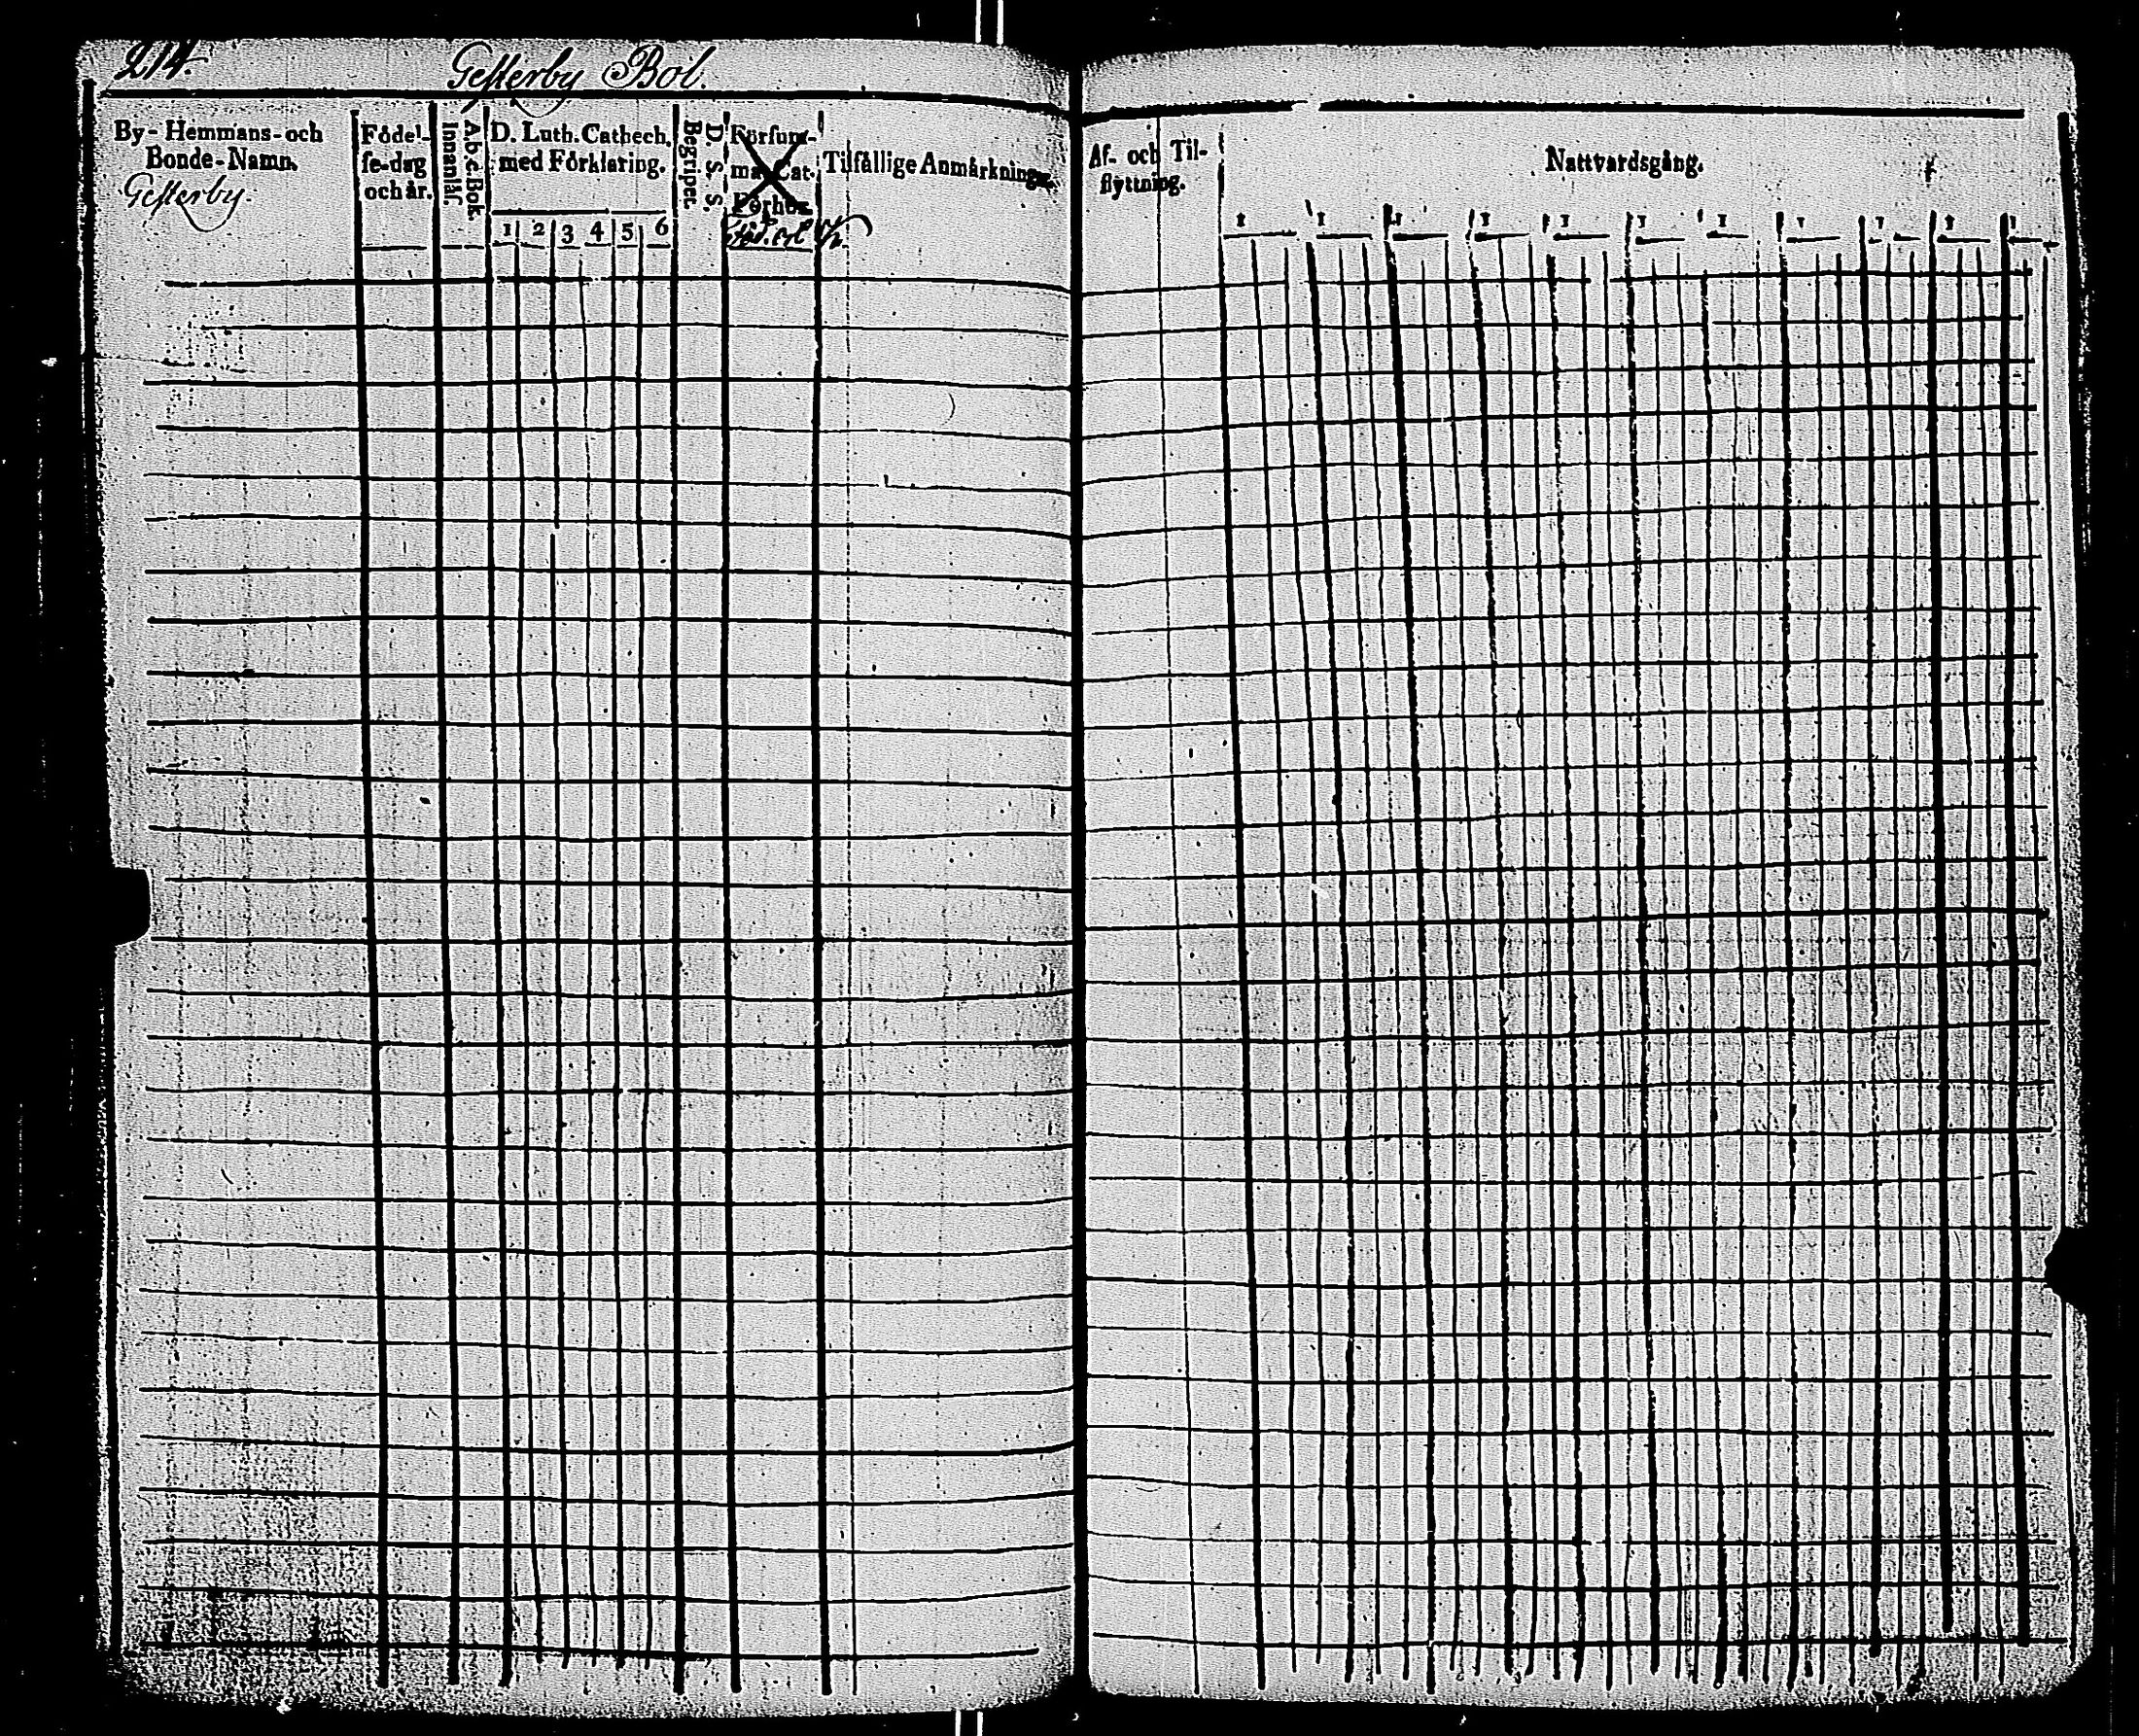 214.
Gesterby Bol.
By- Hemmans- och
Bonde-Namn.
Gesterby.
Födel-
se-dag
och år.
A.b.c.Bok.
Innanläs.
D. Luth. Cathech.
med Förklaring.
1 2 3 4 5 6
D. S. S.
Begripet.
Försum-
ma Cat.
Förhör.
Tilfällige Anmärkningar.
Af- och Til-
flyttning.
Nattvardsgång.
1 1 1 1 1 1 1 1 1 1 1